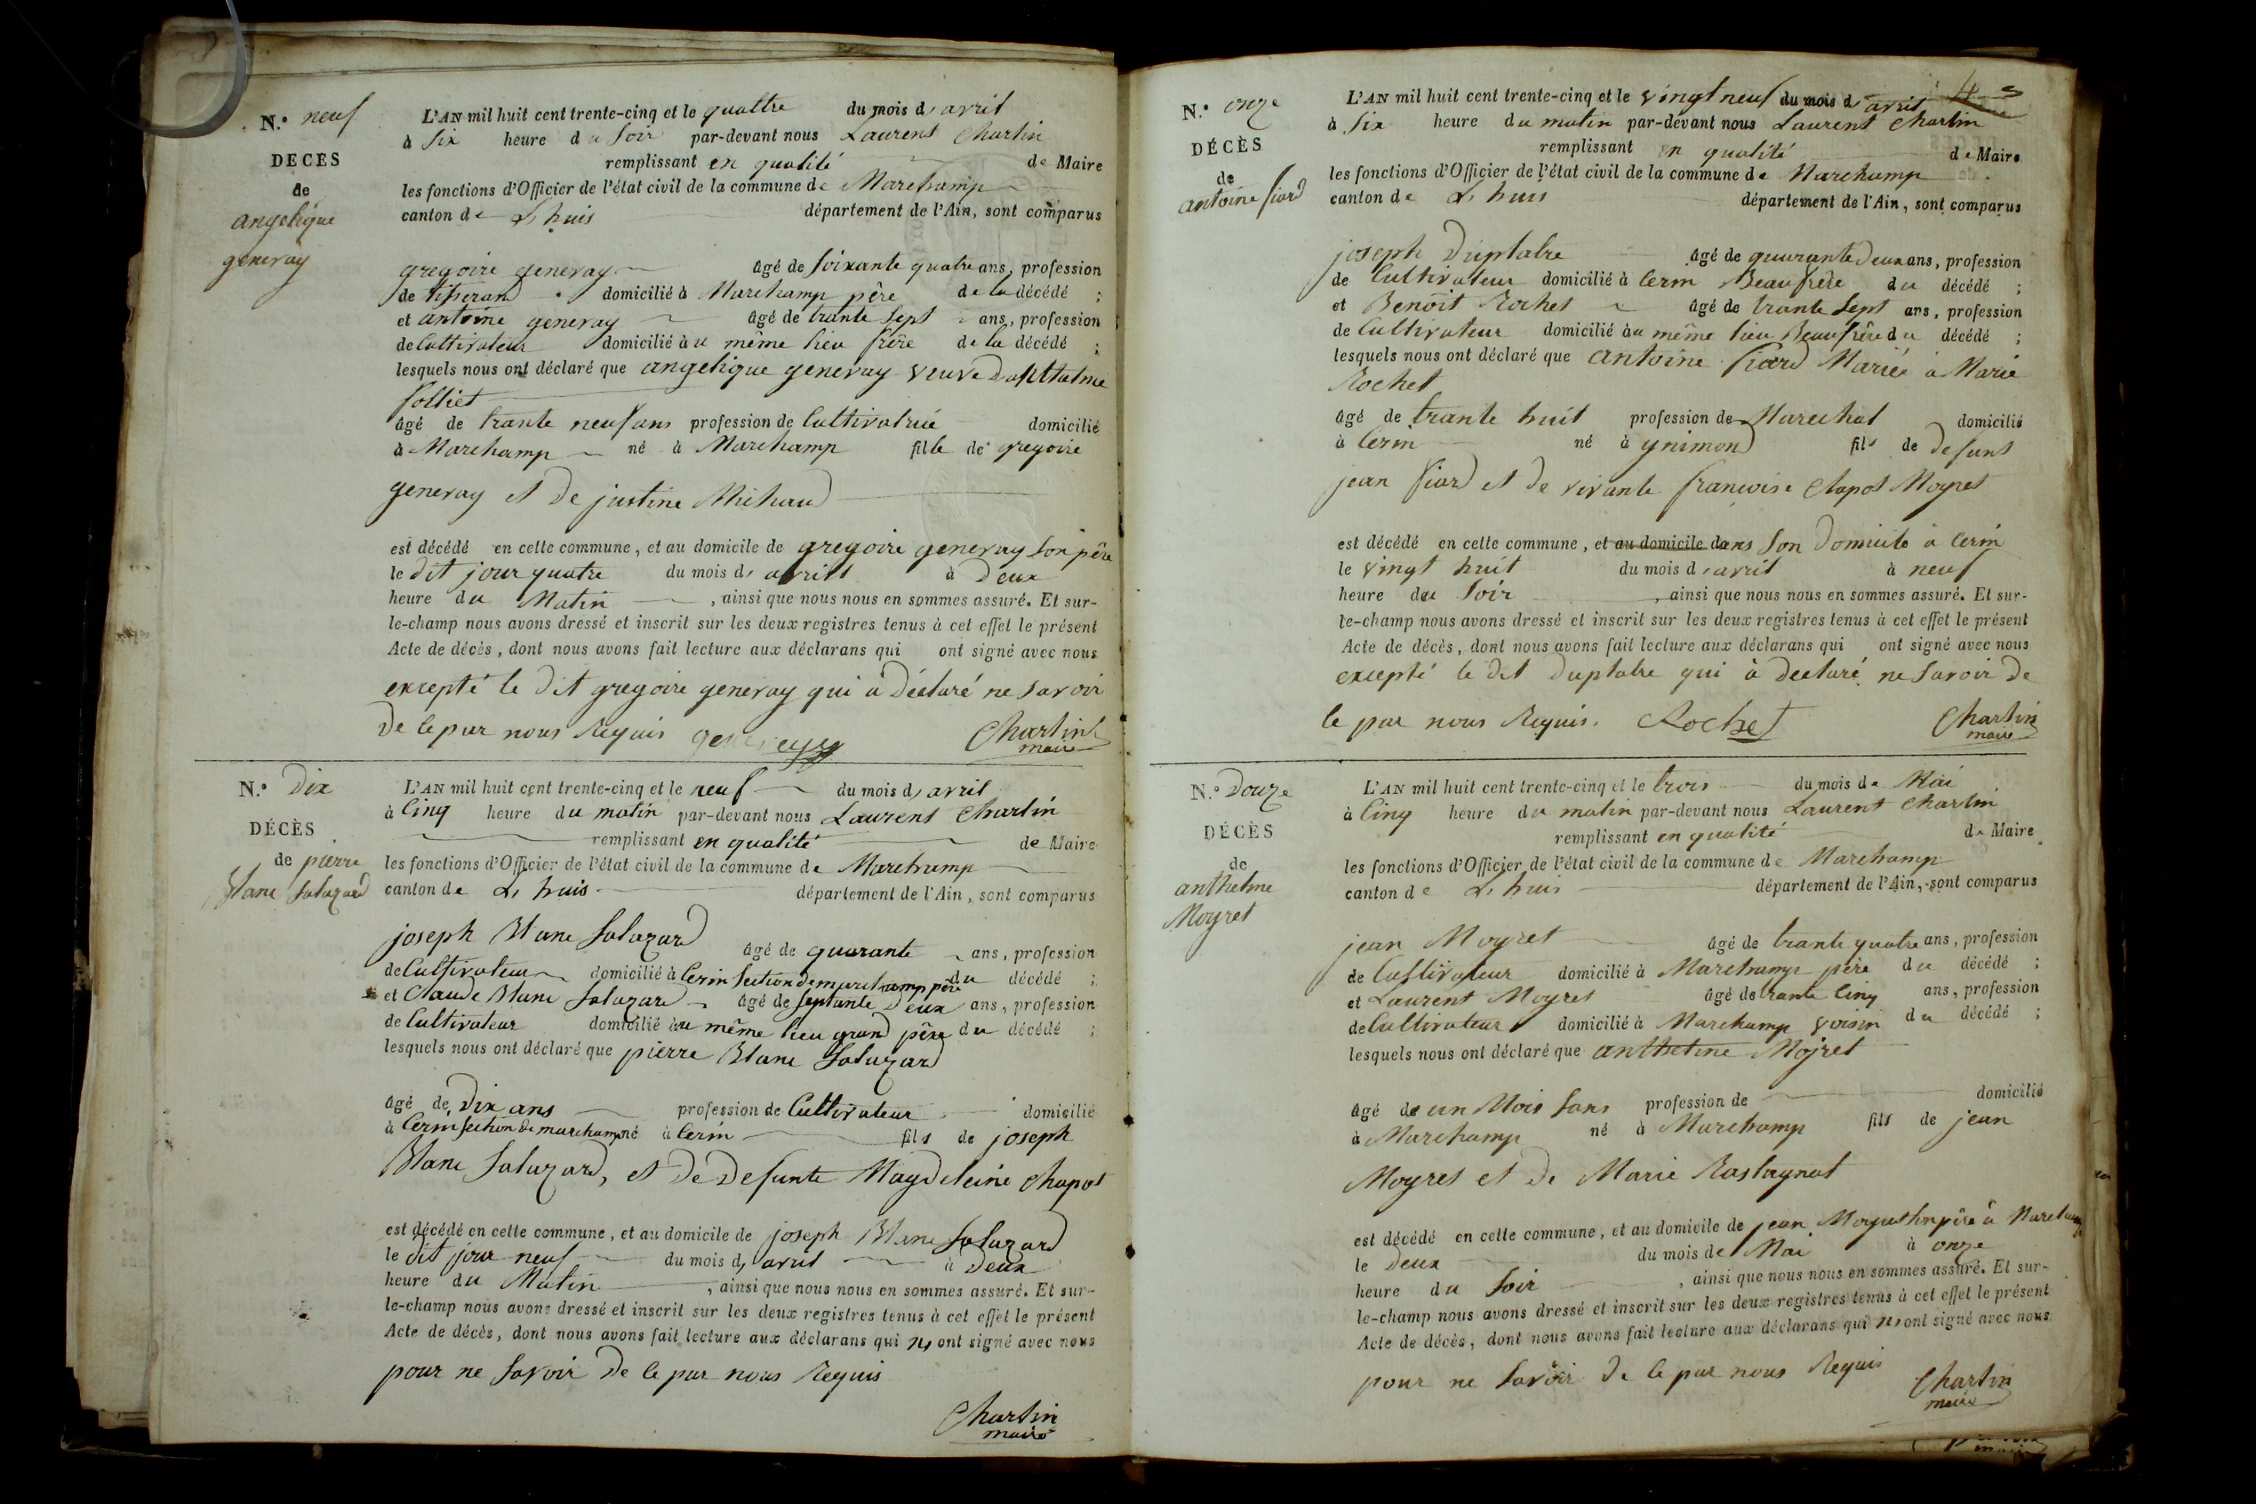 N.° neuf
DECES
de
angelique
generay
L'AN mil huit cent trente-cinq et le quattre du mois d'avril
à Six heure du Soir par-devant nous Laurent Charlin
remplissant en qualité de Maire
les fonctions d'Officier de l'état civil de la commune de Marchamp
canton de L'huis département de l'Ain, sont comparus
gregoire generay âgé de Soixante quatre ans, profession
de tisserand domicilié à Marchamp père de la décédé ;
et antoine generay âgé de trante Sept ans, profession
de Cultivateur domicilié au même lieu frère de la décédé ;
lesquels nous ont déclaré que angelique generay veuve d'anthelme
folliet
âgé de trante neuf ans profession de Cultivatrice domicilié
à Marchamp né à Marchamp fille de gregoire
generay et de justine Michaud
est décédé en cette commune, et au domicile de gregoire generay Son père
le dit jour quatre du mois d'avril à deux
heure du Matin , ainsi que nous nous en sommes assuré. Et sur-
le-champ nous avons dressé et inscrit sur les deux registres tenus à cet effet le présent
Acte de décès, dont nous avons fait lecture aux déclarans qui ont signé avec nous
excepté le dit gregoire generay qui à déclaré ne savoir
de ce par nous Requis generay Charlin
maire
N.° Dix
DÉCÈS
de pierre
Blanc Salazard
L'AN mil huit cent trente-cinq et le neuf du mois d'avril
à Cinq heure du matin par-devant nous Laurent Charlin
remplissant en qualité de Maire
les fonctions d'Officier de l'état civil de la commune de Marchamp
canton de L'huis département de l'Ain, sont comparus
joseph Blanc Salazard âgé de quarante ans, profession
de Cultivateur domicilié à Cerin Section de marchamp père du décédé ;
et Claude Blanc Salazard âgé de septante deux ans, profession
de Cultivateur domicilié au même lieu grand père du décédé ;
lesquels nous ont déclaré que pierre Blanc Salazard
âgé de Dix ans profession de Cultivateur domicilié
à Cerin Section de marchamp né à Cerin fils de joseph
Blanc Salazard, et de defunte Magdeleine Chapot
est décédé en cette commune, et au domicile de joseph Blanc Salazard
le dit jour neuf du mois d'avril à Deux
heure du Matin , ainsi que nous nous en sommes assuré. Et sur-
le-champ nous avons dressé et inscrit sur les deux registres tenus à cet effet le présent
Acte de décès, dont nous avons fait lecture aux déclarans qui n'ont signé avec nous
pour ne savoir de ce par nous Requis
Charlin
maire
N.° onze
DÉCÈS
de
antoine fiard
L'AN mil huit cent trente-cinq et le vingt neuf du mois d'avril
à Six heure du matin par-devant nous Laurent Charlin
remplissant en qualité de Maire
les fonctions d'Officier de l'état civil de la commune de Marchamp
canton de L'huis département de l'Ain, sont comparus
joseph Duplatre âgé de quarante deux ans, profession
de Cultivateur domicilié à Cerin Beaufrère du décédé ;
et Benoit Rochet âgé de trante Sept ans, profession
de Cultivateur domicilié au même lieu Beaufrère du décédé ;
lesquels nous ont déclaré que antoine fiard Marié à Marie
Rochet
âgé de trante huit profession de Marechal domicilié
à Cerin né à ynimond fils de defunt
jean fiard et de vivante francoise Clapot Moyret
est décédé en cette commune, et au domicile dans Son Domicile à Cerin
le vingt huit du mois d'avril à neuf
heure du Soir , ainsi que nous nous en sommes assuré. Et sur-
le-champ nous avons dressé et inscrit sur les deux registres tenus à cet effet le présent
Acte de décès, dont nous avons fait lecture aux déclarans qui ont signé avec nous
excepté le dit duplatre qui à déclaré ne savoir de
ce par nous Requis. Rochet Charlin
maire
N.° Douze
DÉCÈS
de
anthelme
Moyret
L'AN mil huit cent trente-cinq et le trois du mois de Mai
à Cinq heure du matin par-devant nous Laurent Charlin
remplissant en qualité de Maire
les fonctions d'Officier de l'état civil de la commune de Marchamp
canton de L'huis département de l'Ain, sont comparus
jean Moyret âgé de trante quatre ans, profession
de Cultivateur domicilié à Marchamp père du décédé ;
et Laurent Moyret âgé de trante Cinq ans, profession
de Cultivateur domicilié à Marchamp voisin du décédé ;
lesquels nous ont déclaré que anthelme Moyret
âgé de un Mois Sans profession de domicilié
à Marchamp né à Marchamp fils de jean
Moyret et de Marie Rastagnat
est décédé en cette commune, et au domicile de jean Moyret Son père à Marchamp
le Deux du mois de Mai à onze
heure du Soir , ainsi que nous nous en sommes assuré. Et sur-
le-champ nous avons dressé et inscrit sur les deux registres tenus à cet effet le présent
Acte de décès, dont nous avons fait lecture aux déclarans qui n'ont signé avec nous
pour ne savoir de ce par nous Requis
Charlin
maire